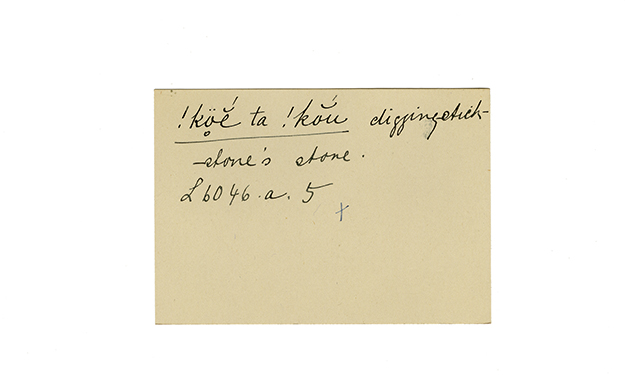 !kö̥ĕ́ ta !kŏ́u diggingstick-
-stone's stone.
L 6046.a.5
+